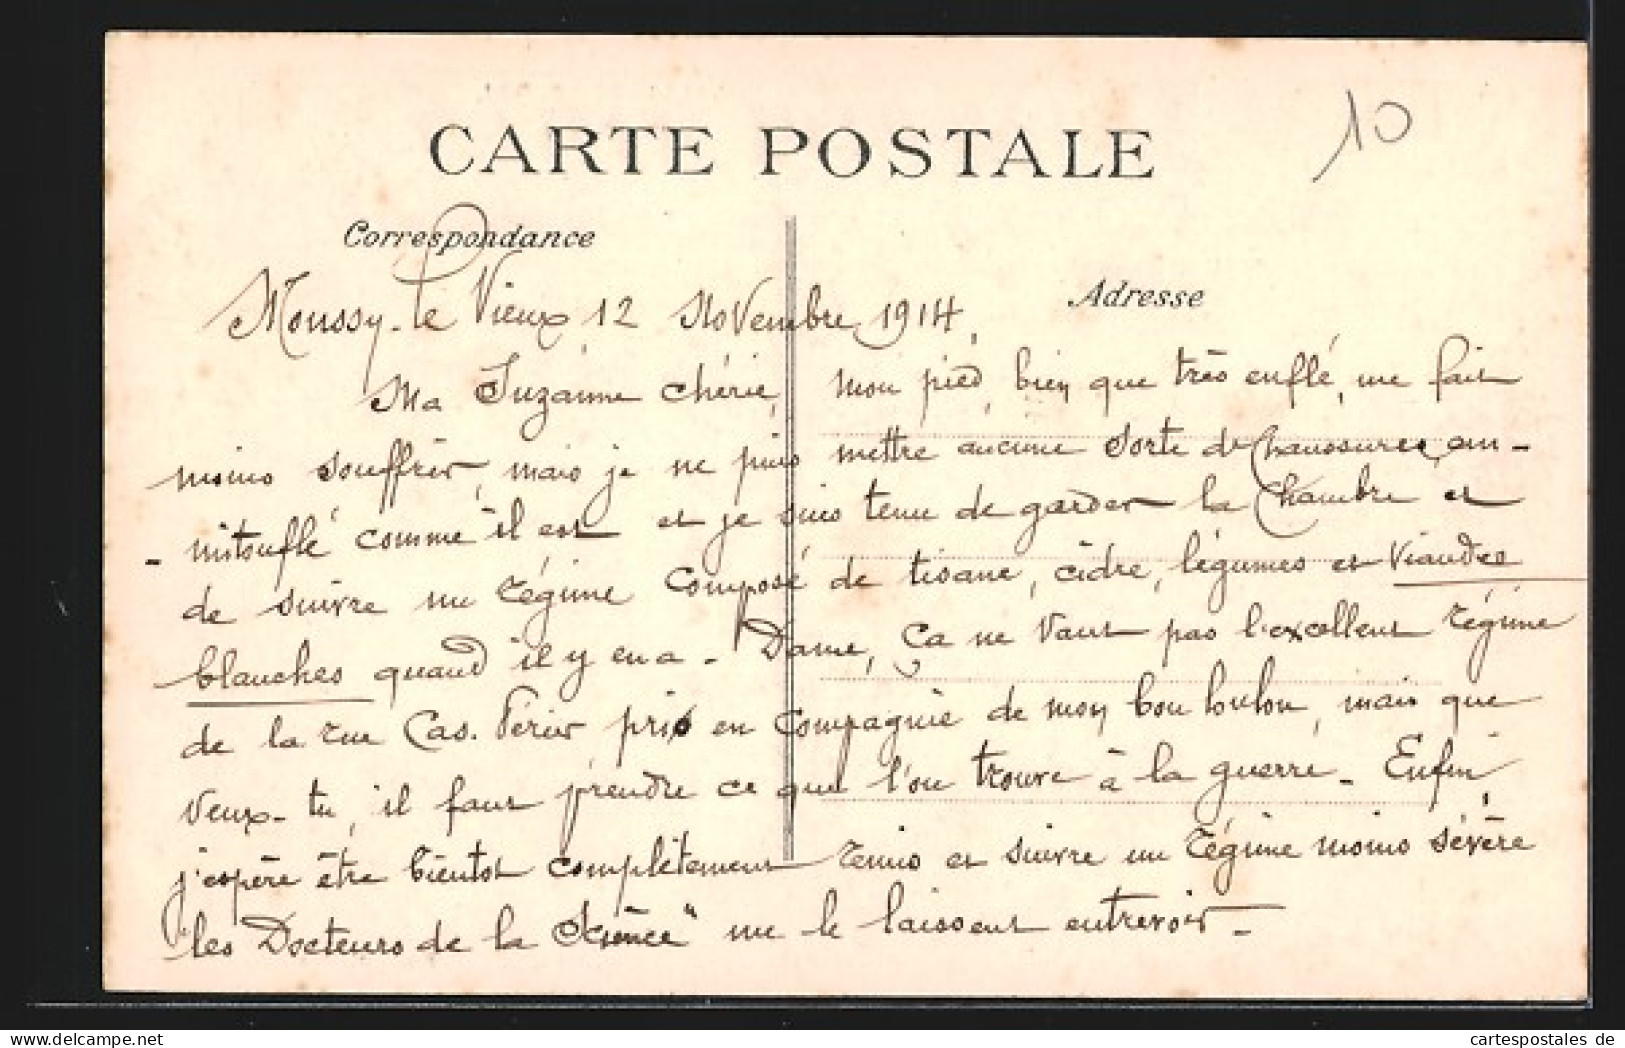 10
CARTE POSTALE
Correspondance
Adresse
Moussy-le Vieux 12 Novembre 1914,
Ma Suzanne chérie, mon pied, bien que très enflé, me fait
moins souffrir, mais je ne puis mettre aucune sorte de chaussures, em-
- mitouflé comme il est et je suis tenu de garder la chambre et
de suivre un régime composé de tisane, cidre, légumes et viandes
blanches quand il y en a. Dame, ça ne vaut pas l'excellent régime
de la rue Cas. Périer pris en compagnie de mon bon loulou, mais que
veux-tu, il faut prendre ce que l'on trouve à la guerre. Enfin,
j'espère être bientôt complètement remis et suivre un régime moins sévère
"les Docteurs de la Science" me le laissent entrevoir.
www.oldthing.de
cartespostales de